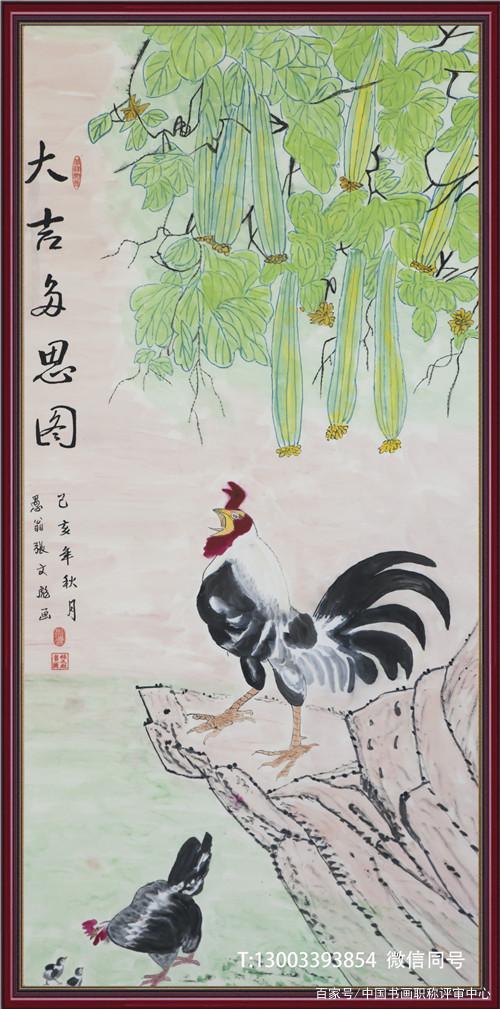 大吉多思图
己亥年秋月
愚翁张文彪画
T:13003393854 微信同号
百家号/中国书画职称评审中心